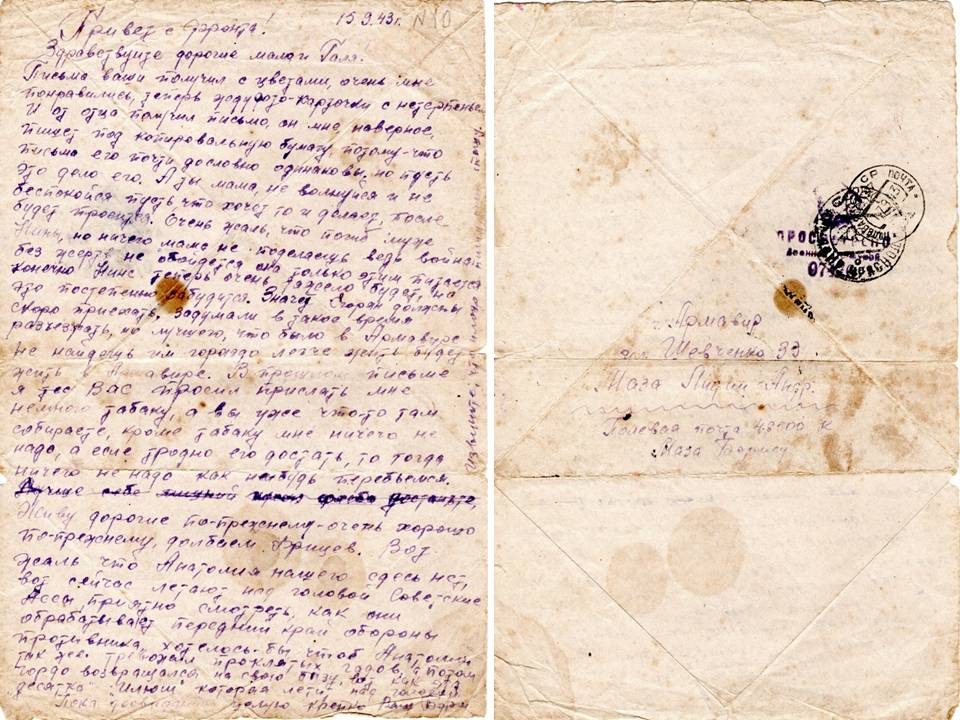 15.9.43 г. N10
Привет с фронта!
Здравствуйте дорогие мама и Галя.
Письма ваши получил с цветами, очень мне
понравились, теперь жду фото-карточки с нетерпеньем
И от отца получил письмо, он мне наверное,
пишет под копировальную бумагу, потому-что
письма его почти дословно одинаковы, но пусть
это дело его. А ты мама, не волнуйся и не
беспокойся пусть что хочет то и делает, после
будет Очень жаль, что погиб муж
Нины, но ничего мама не поделаешь ведь война
без жертв не обойдется она только этим питается
конечно Нине теперь очень тяжело будет, но
это постепенно забудится. Значит должны
скоро приехать. Задумали в такое время
разъезжать, но лучшего, что было в Армавире
не найдешь им гораздо легче жить будет
жить в Армавире. В прошлом письме
я Вас просил прислать мне
немного табаку, а вы уже что-то там
собираете, кроме табаку мне ничего не
надо, а если трудно его достать, то тогда
ничего не надо как нибудь перебьемся.
Лучше себе лишний достаньте,
Живу дорогие по-прежнему-очень хорошо
по-прежнему, долбаем Фрицов. Вот
жаль что Анатолия нашего здесь нет,
вот сейчас летают над головой Советские
Ассы, приятно смотреть, как они
обрабатывают передний край обороны
противника, хотелось-бы чтоб Анатолий
так же проклятых гадов, и потом
гордо возвращался на свою базу, вот как эта
десятка "Илюш" которая летит над головой
Пока целую крепко Ваш
Извините, что плохо
ПОЧТА
ПРОС
07
Армавир
Шевченко 33.
Маза Лидии Антр.
Полевая почта 48700 К
Маза Борису